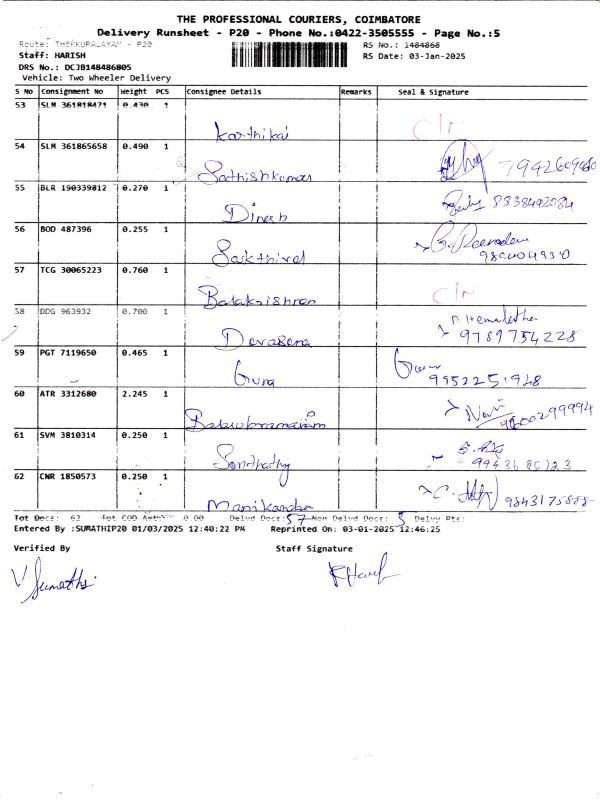 THE PROFESSIONAL COURIERS, COIMBATORE
Delivery Runsheet - P20 - Phone No.:0422-3505555 - Page No.:5
Route: THEKKUPALAYAM - P20
RS No.: 1484868
Staff: HARISH
RS Date: 03-Jan-2025
DRS No.: DCJB148486805
Vehicle: Two Wheeler Delivery
S No Consignment No Weight PCS Consignee Details Remarks Seal & Signature
53 SLM 361818471 0.430 1
Karthikai
54 SLM 361865658 0.490 1
Sathishkumar
55 BLR 190339812 0.270 1
Dinesh 8838492084
56 BOD 487396 0.255 1
Sakthivel
57 TCG 30065223 0.760 1
Balakrishnan
58 DDG 963932 0.700 1
D. Hemalatha
Devasena 9789754228
59 PGT 7119650 0.465 1
Guna 9952251948
60 ATR 3312680 2.245 1
Balasubramaniam 9600299994
61 SVM 3810314 0.250 1
62 CNR 1850573 0.250 1
Manikandan 9843175888
Tot Docs: 62 Tot COD Amt: 0.00 Delvd Docs: 57 Non Delvd Docs: 5 Delvy Pts:
Entered By :SUMATHIP20 01/03/2025 12:40:22 PM Reprinted On: 03-01-2025 12:46:25
Verified By Staff Signature
V. Sumathi